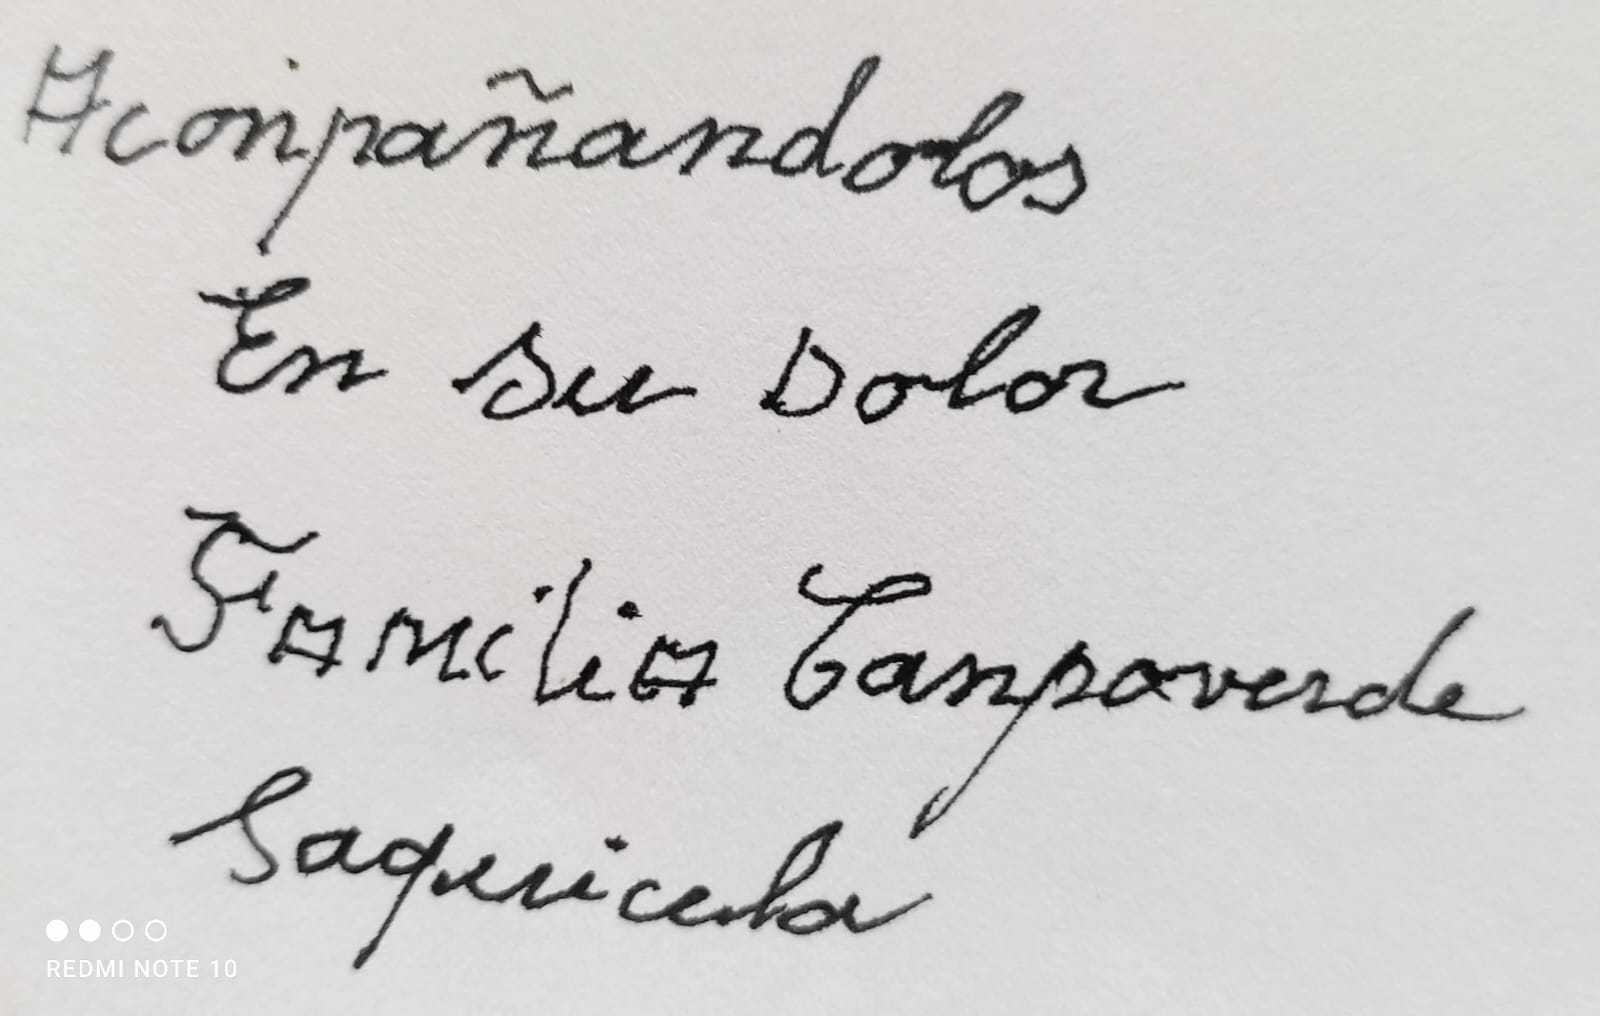 Aconpañandolos
En su Dolor
Familia Canpoverde
Saquicela
REDMI NOTE 10